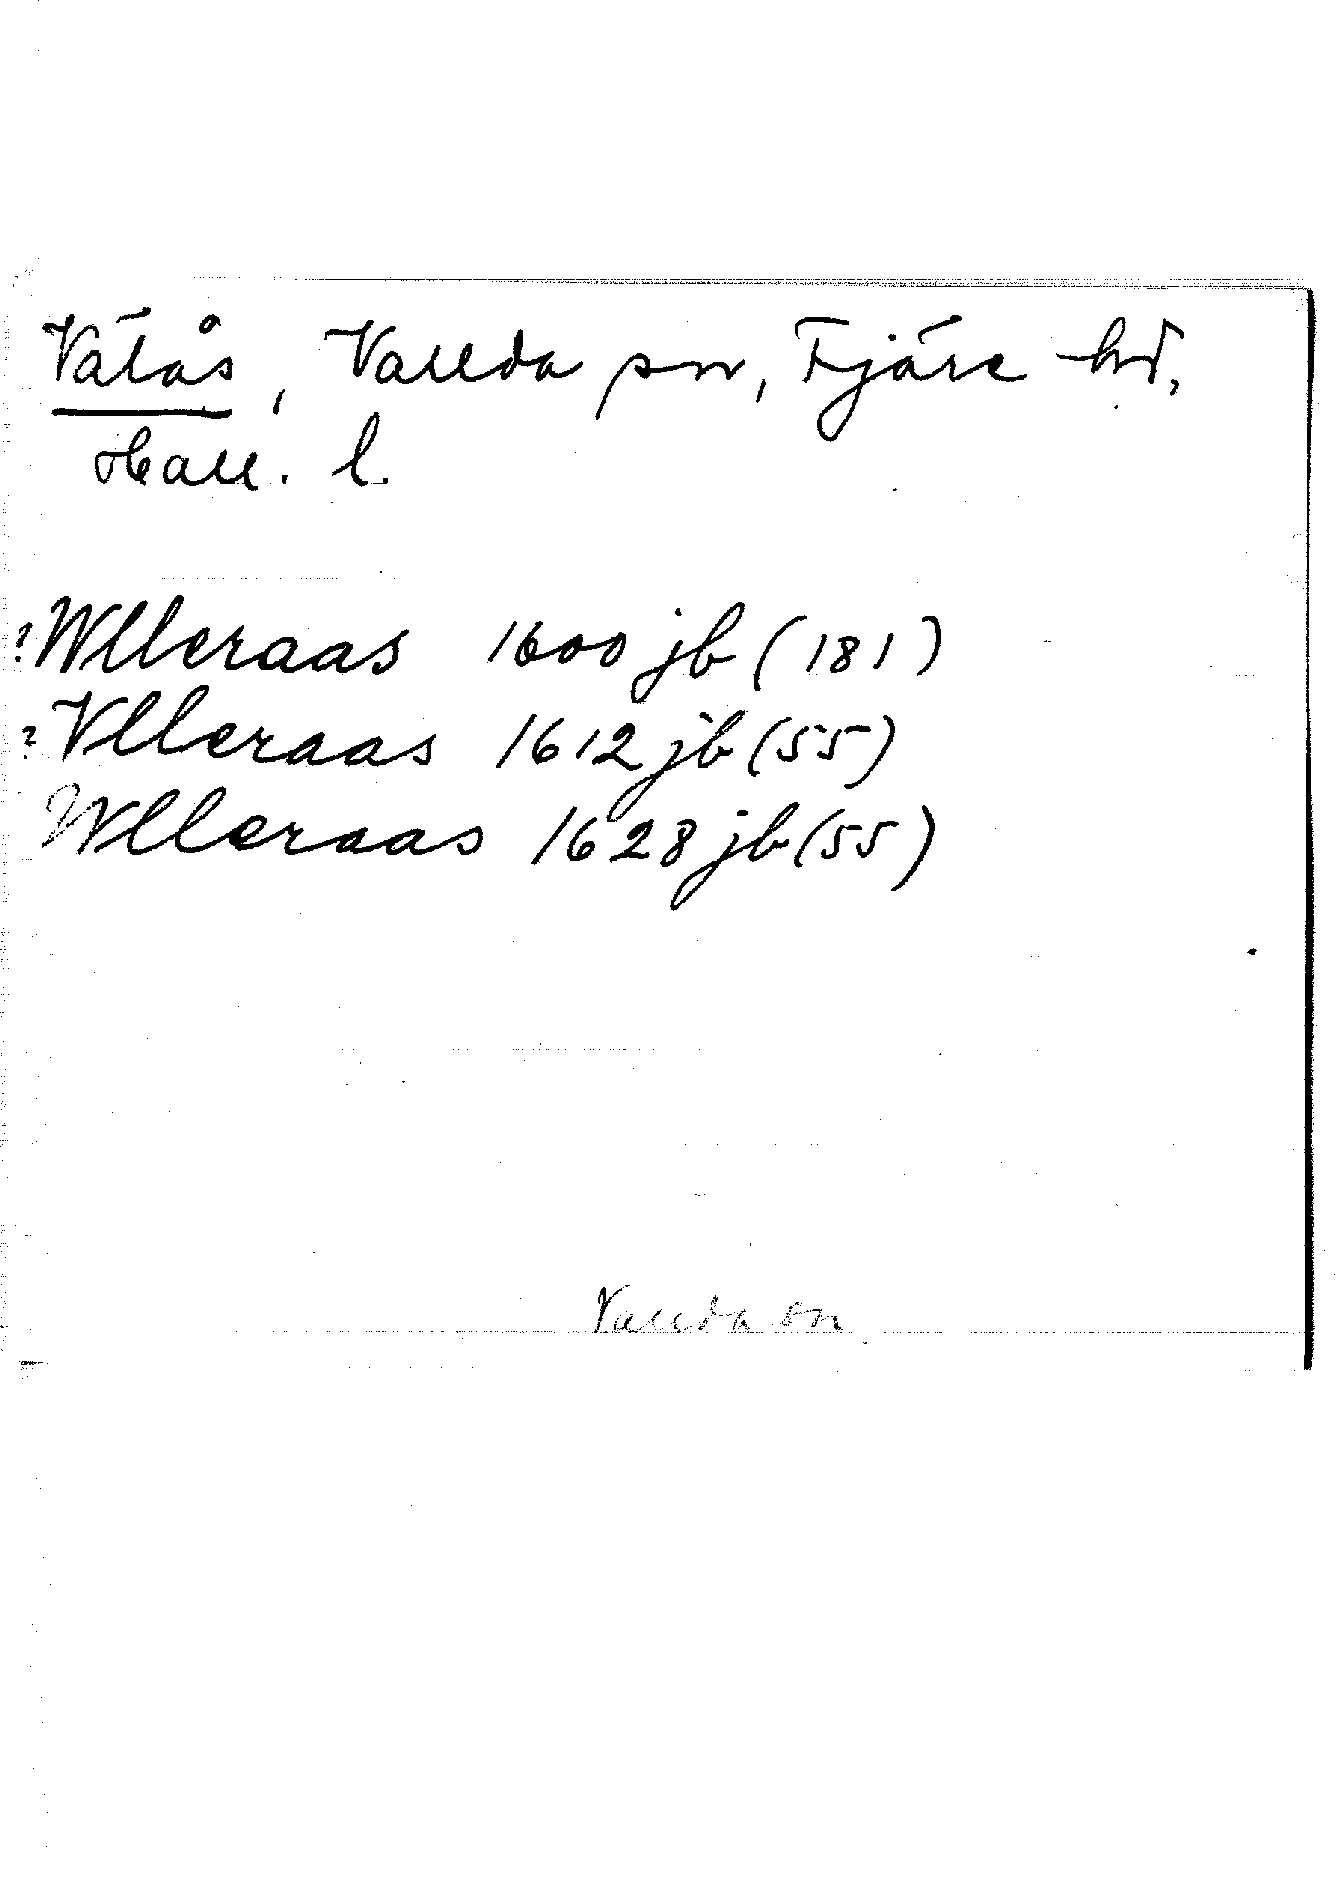 Välås, Vallda sn, Fjäre hd,
Hall. l.
?Wlleraas 1600 jb (181)
?Vlleraas 1612 jb (55)
Wlleraas 1628 jb (55)
Vallda sn